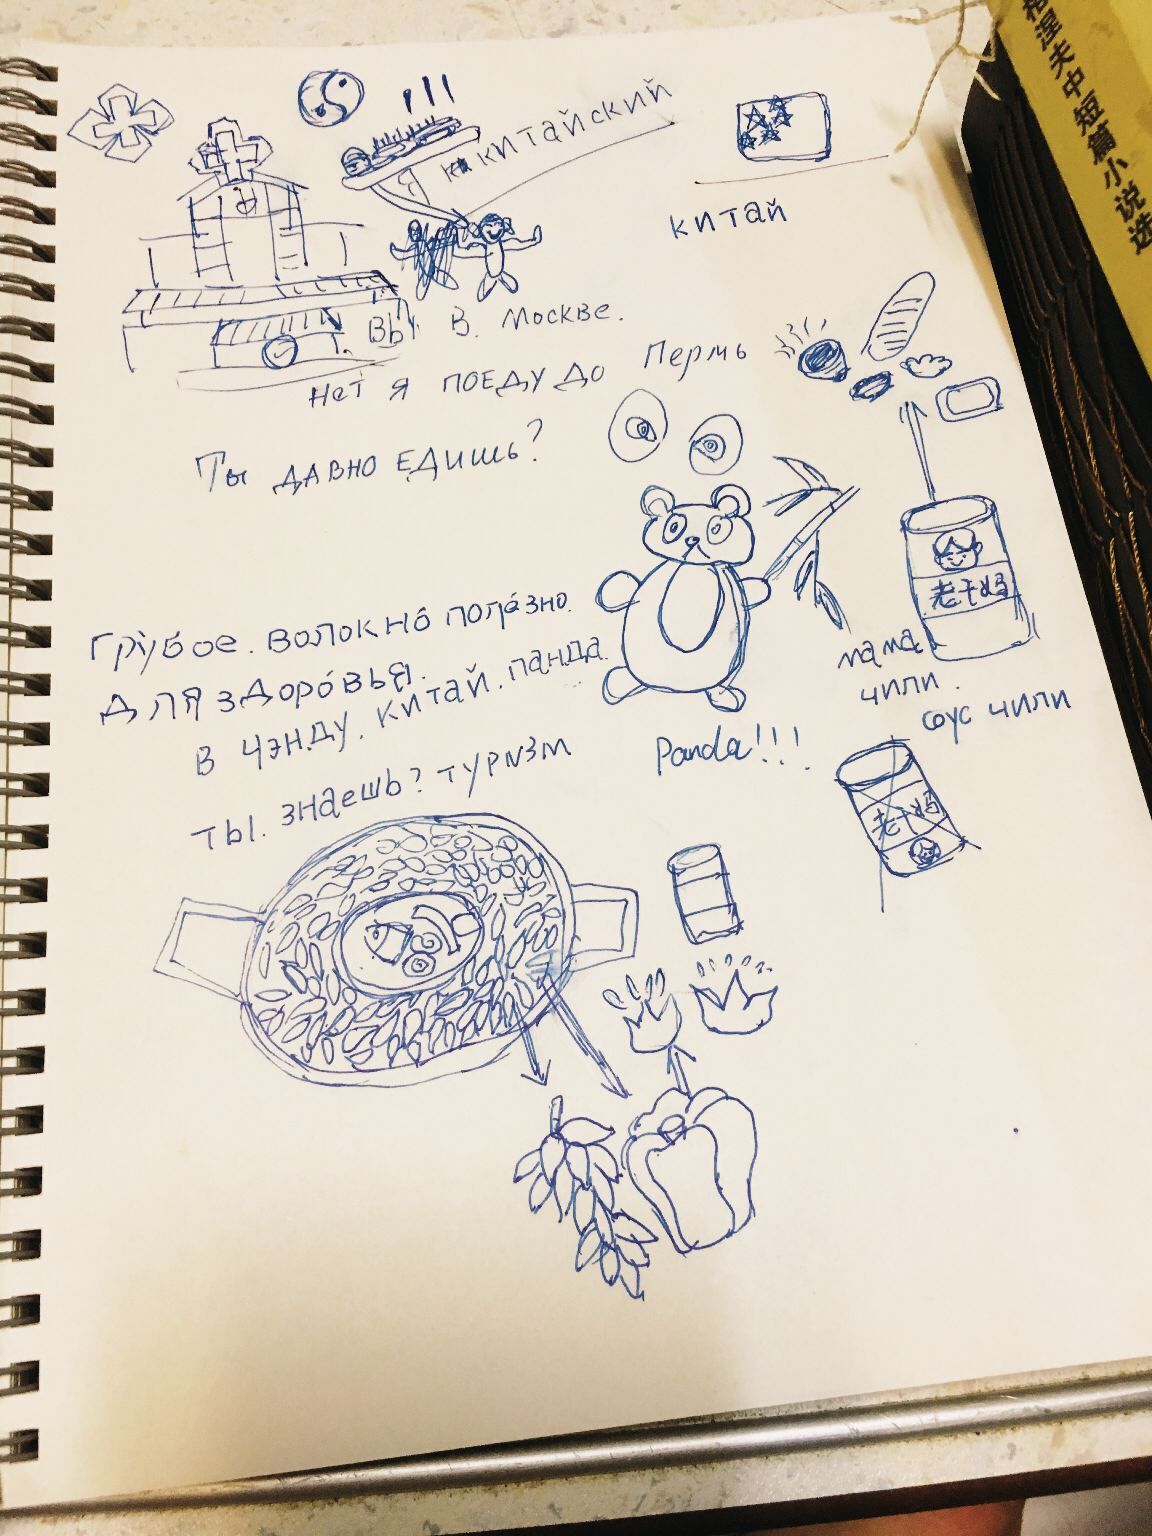 Я китайский
китай
Вы В. Москве.
Нет Я поеду до Пермь
Ты давно едишь?
Грубое. волокно́ поле́зно.
Для здоро́вья.
В чэнду. Китай. панда.
ты. знаешь? туризм
Panda!!!
老干妈
мама
чили.
соус чили
老干妈
涅夫中短篇小说选